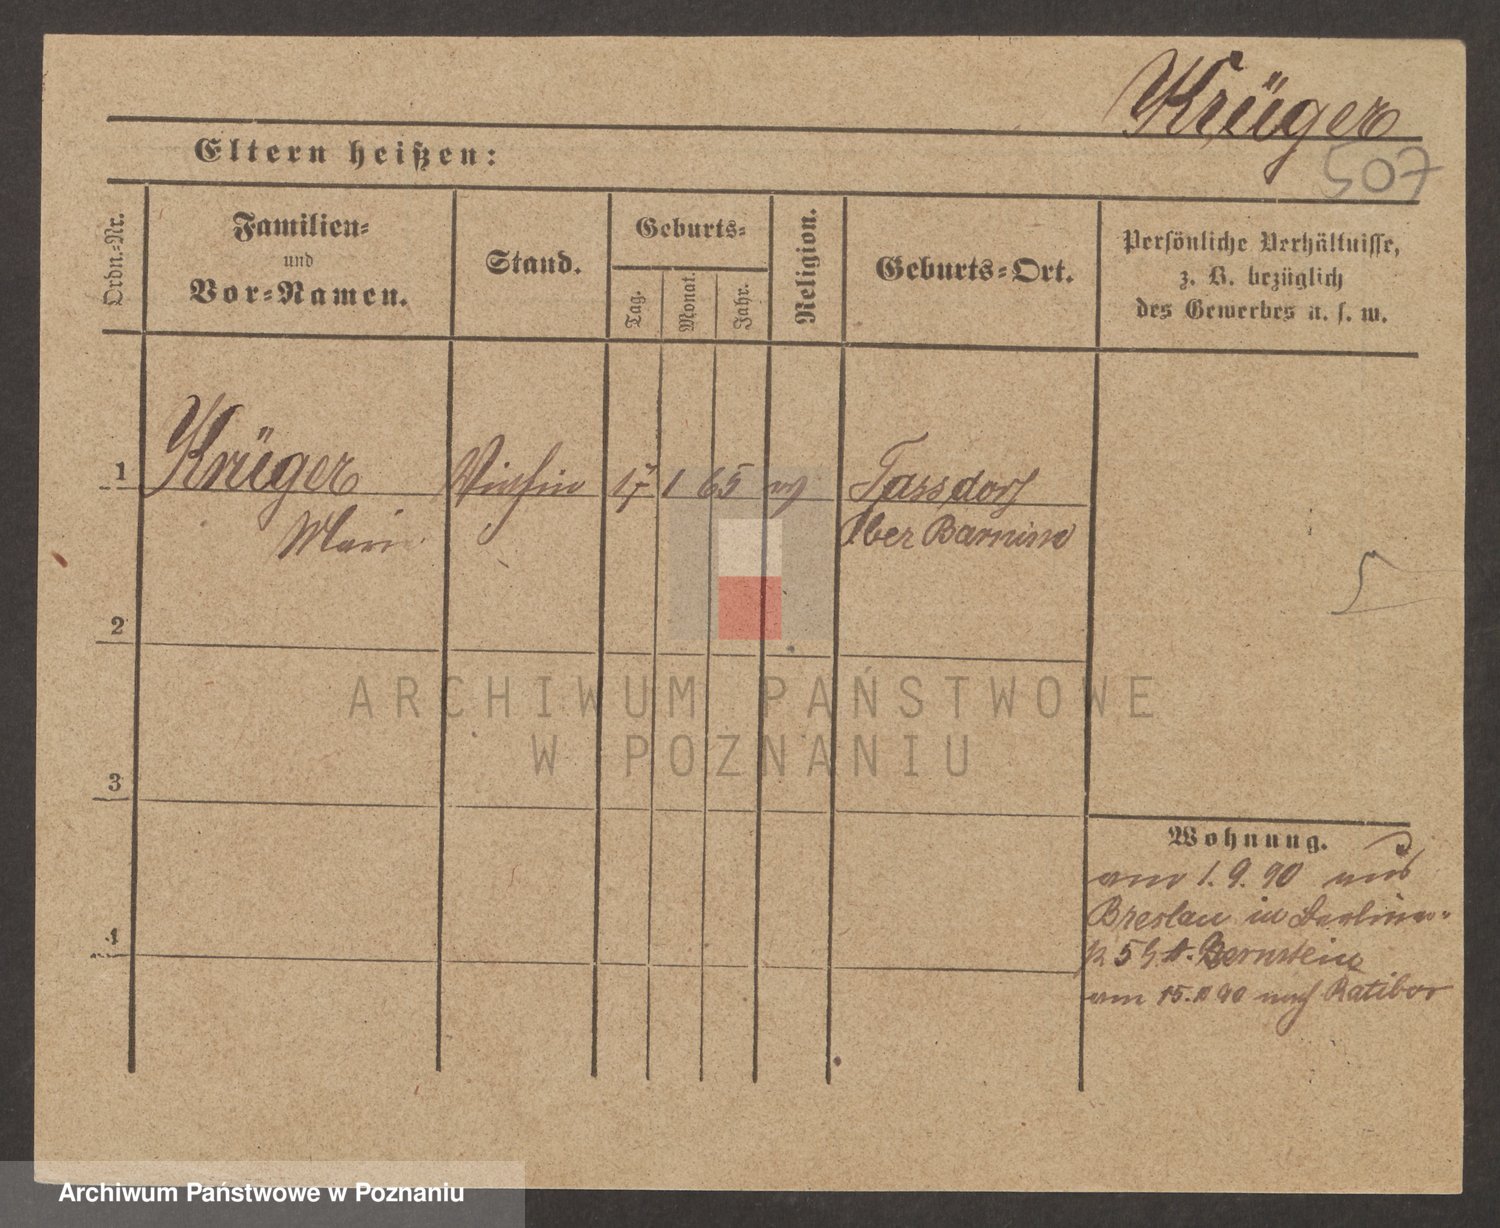 Krüger
507
Eltern heißen:
Ordn.-Nr.
Familien-
und
Vor-Namen.
Stand.
Geburts-
Tag.
Monat.
Jahr.
Religion.
Geburts-Ort.
Persönliche Verhältnisse,
z. B. bezüglich
des Gewerbes u. s. w.
1 Krüger 17 1 65 Tassdorf
Marie Ober Barnim
2
3
4
Wohnung.
am 1. 9. 90 aus
Breslau in Berliner-
5 Bernstein
am 15. 90 nach Ratibor
ARCHIWUM PAŃSTWOWE
W POZNANIU
Archiwum Państwowe w Poznaniu